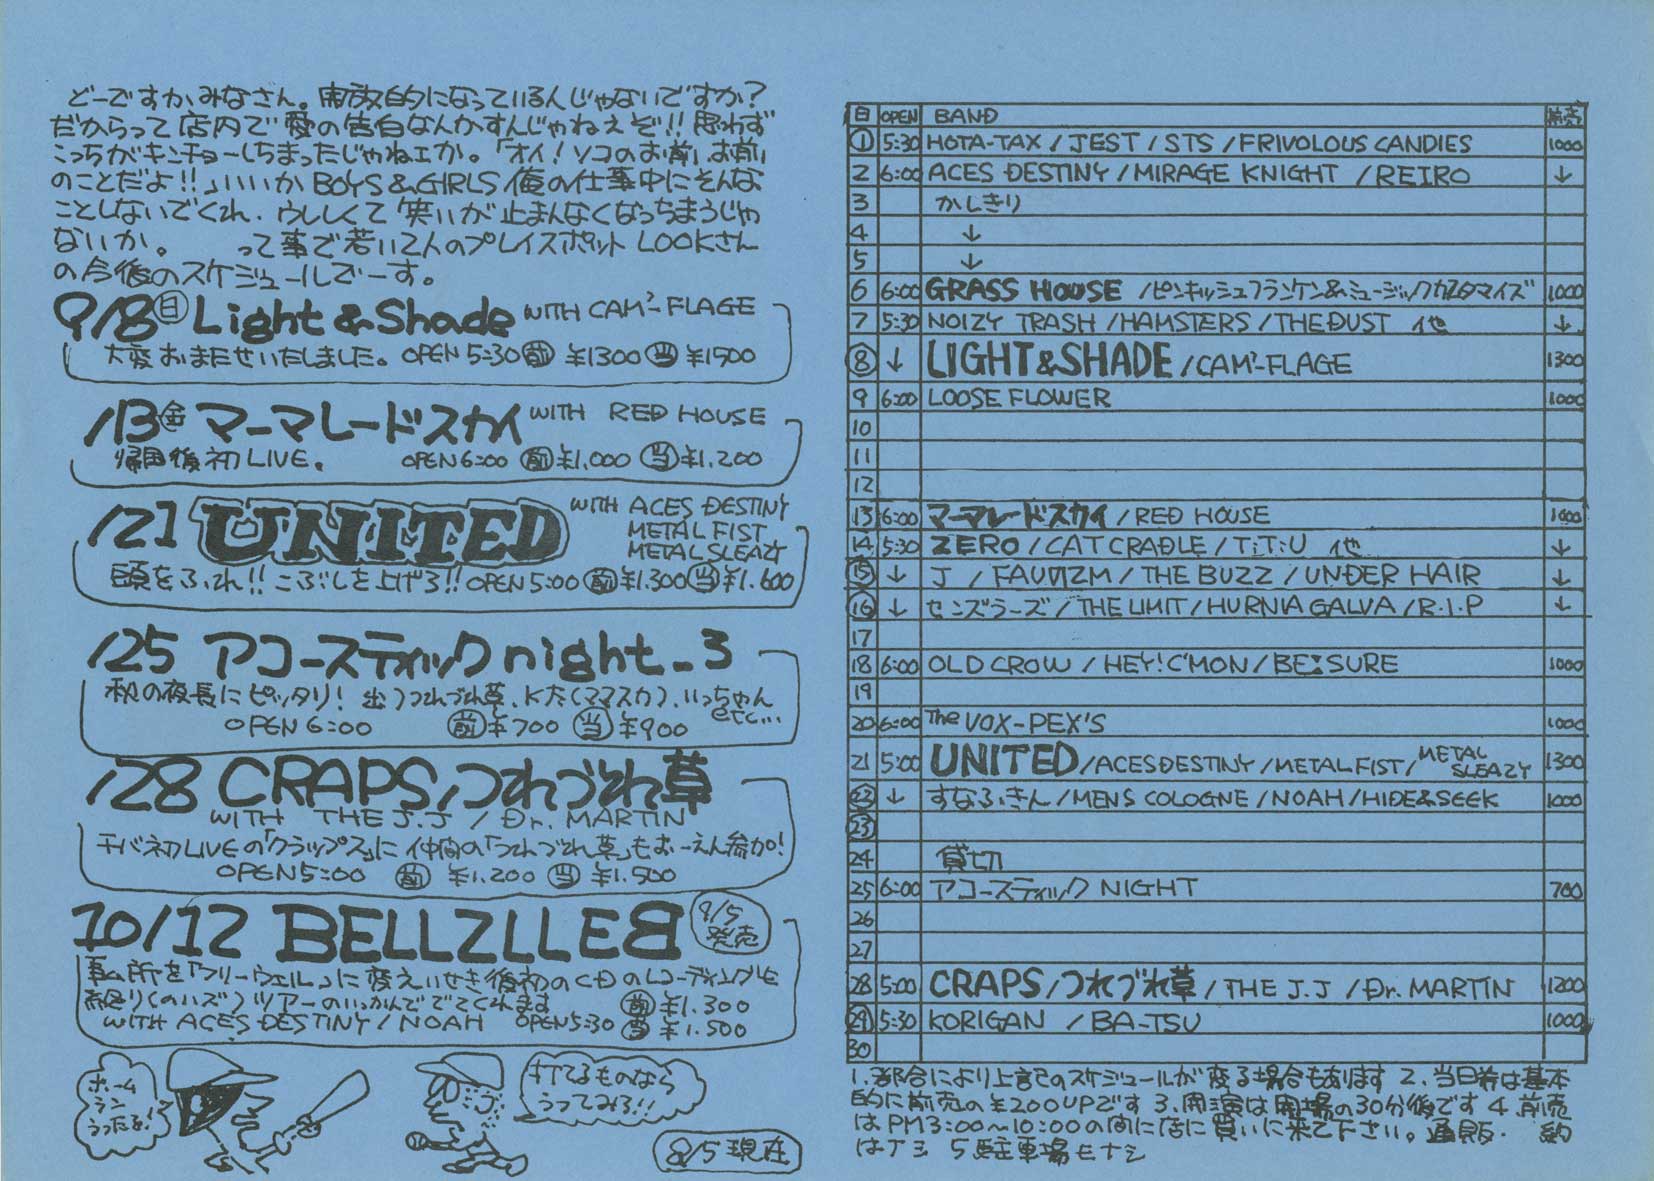 どーですか、みなさん。開放的になっているんじゃないですか?
だからって店内で愛の告白なんかすんじゃねえぞ!! 思わず
こっちがキンチョーしちまったじゃねェか。「オイ!ソコのお前、お前
のことだよ!!」いいか BOYS&GIRLS 俺の仕事中にそんな
ことしないでくれ、ウレしくて笑いが止まんなくなっちまうじゃ
ないか。 って事で若い2人のプレイスポット LOOKさん
の今後のスケジュールでーす。
9/8 日 Light & Shade WITH CAM²-FLAGE
大変おまたせいたしました。 OPEN 5:30 前 ¥1300 当 ¥1500
/13 金 マーマレードスカイ WITH RED HOUSE
帰国後初LIVE。 OPEN 6:00 前 ¥1,000 当 ¥1,200
/21 UNITED WITH ACES DESTINY
METAL FIST
METAL SLEAZY
頭をふれ!! こぶしを上げろ!! OPEN 5:00 前 ¥1,300 当 ¥1,600
/25 アコースティック night_3
秋の夜長にピッタリ! 出)つれづれ草、K太(ママスカ)、いっちゃん
etc...
OPEN 6:00 前 ¥700 当 ¥900
/28 CRAPS/つれづれ草
WITH THE J.J / Dr. MARTIN
千バ初LIVEの「クラップス」に仲間の「つれづれ草」もおーえん参加!
OPEN 5:00 前 ¥1,200 当 ¥1,500
10/12 BELLZLLEB 9/5 発売
事ム所を「フリーウェル」に変えいせき後初のCDのレコーディングを
終り(のハズ)ツアーのいっかんででてくれます 前 ¥1,300
WITH ACES DESTINY / NOAH OPEN 5:30 当 ¥1,500
ホーム
ラン
うったる!
打てるものなら
うってみろ!!
8/5 現在
日 OPEN BAND 前売
1 5:30 HOTA-TAX / JEST / STS / FRIVOLOUS CANDIES 1000
2 6:00 ACES DESTINY / MIRAGE KNIGHT / REIRO ↓
3 かしきり
4 ↓
5 ↓
6 6:00 GRASS HOUSE /ピンキッシュフランケン&ミュージックカスタマイズ 1000
7 5:30 NOIZY TRASH / HAMSTERS / THE DUST 他 ↓
8 ↓ LIGHT&SHADE / CAM²-FLAGE 1300
9 6:00 LOOSE FLOWER 1000
10
11
12
13 6:00 マーマレードスカイ / RED HOUSE 1000
14 5:30 ZERO / CAT CRADLE / TiTiU 他 ↓
15 ↓ J / FAUVIZM / THE BUZZ / UNDER HAIR ↓
16 ↓ センズラーズ / THE LIMIT / HURNIA GALVA / R.I.P ↓
17
18 6:00 OLD CROW / HEY! C'MON / BE:SURE 1000
19
20 6:00 The VOX-PEX'S 1000
21 5:00 UNITED / ACES DESTINY / METAL FIST / METAL SLEAZY 1300
22 ↓ すなふきん / MENS COLOGNE / NOAH / HIDE&SEEK 1000
23
24 貸切
25 6:00 アコースティック NIGHT 700
26
27
28 5:00 CRAPS/つれづれ草 / THE J.J / Dr. MARTIN 1200
29 5:30 KORIGAN / BA-TSU 1000
30
1.都合により上記のスケジュールが変る場合もあります 2.当日券は基本
的に前売の¥200UPです 3.開演は開場の30分後です 4.前売
はPM3:00〜10:00の間に店に買いに来て下さい。通販・ 約
はナシ 5 駐車場モナシ